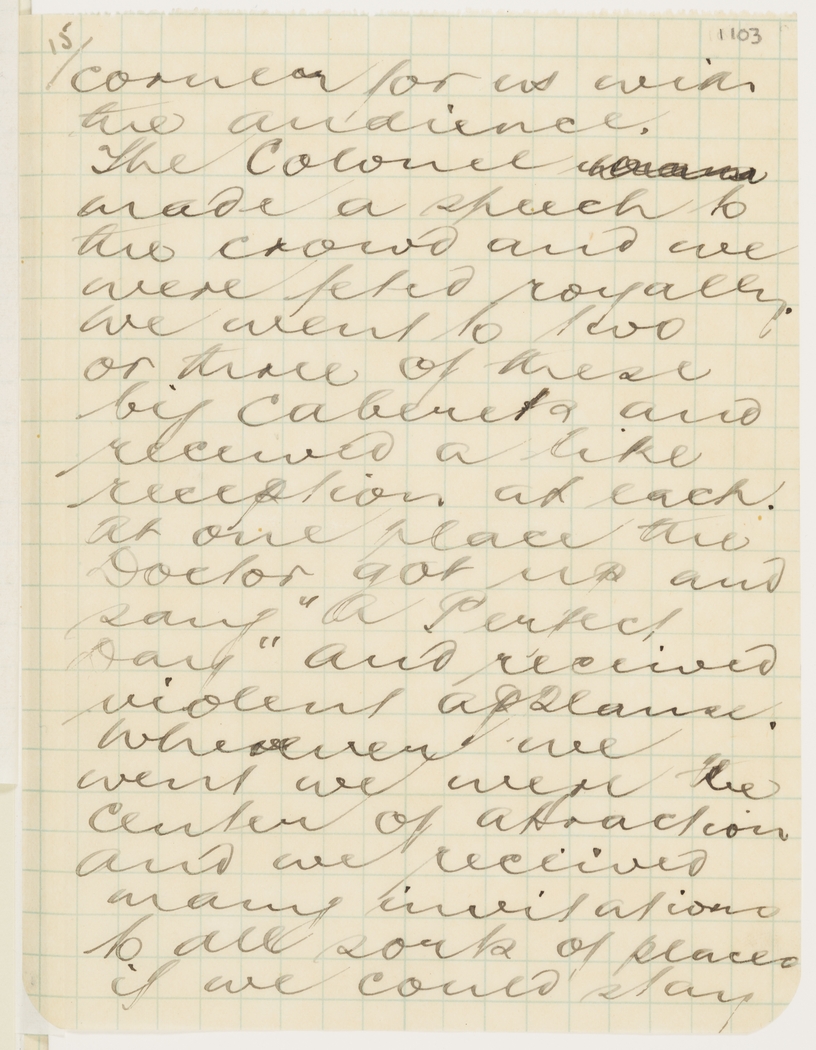 15/
1103
corner for us with
the audience.
The Colonel
made a speech to
the crowd and we
were feted royally.
We went to two
or three of these
big Caberets and
received a like
reception at each.
At one place the
Doctor got up and
sang "A Perfect
Day" and received
violent applause.
Wherever we
went we were the
center of attraction
and we received
many invitations
to all sorts of places
if we could stay